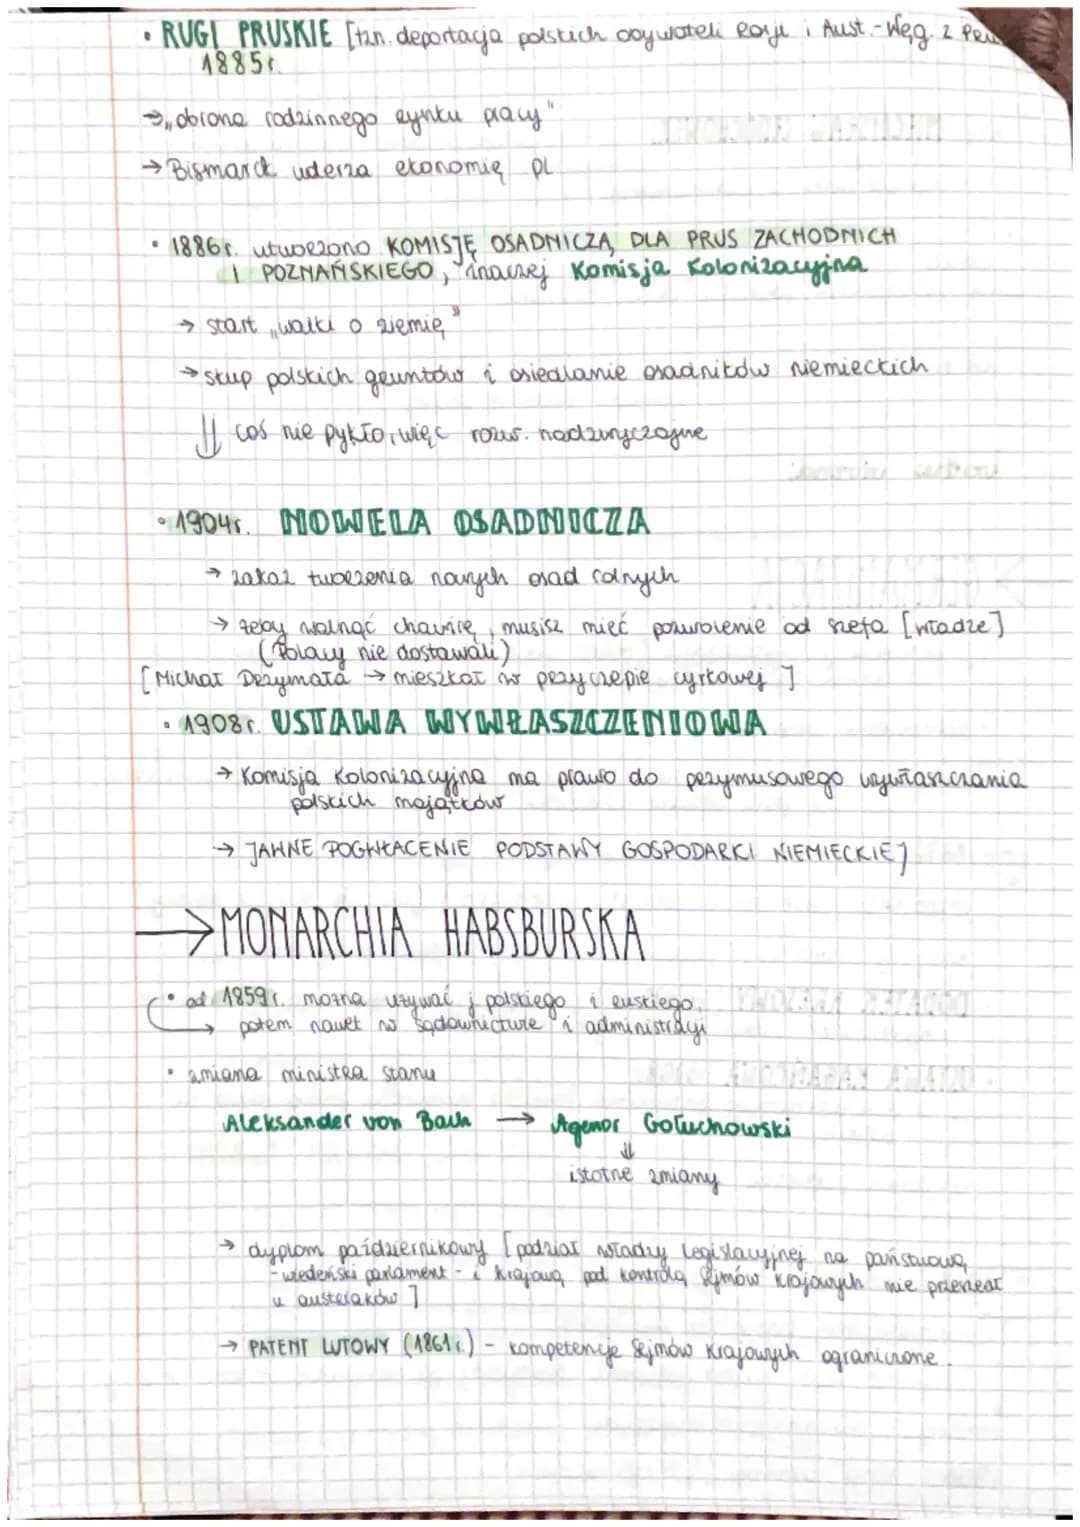 • RUGI PRUSKIE [tzn. deportacja polskich obywateli Rosji i Aust.-Węg. z Prus
1885r.
→ „obrona rodzinnego rynku pracy"
→ Bismarck uderza ekonomię PL
• 1886r. utworzono KOMISJĘ OSADNICZĄ DLA PRUS ZACHODNICH
I POZNAŃSKIEGO, inaczej Komisja Kolonizacyjna
→ start „walki o ziemię"
→ skup polskich gruntów i osiedlanie osadników niemieckich
⇓ coś nie pykło, więc rozw. nadzwyczajne
• 1904r. NOWELA OSADNICZA
→ zakaz tworzenia nowych osad rolnych
→ żeby walnąć chawirę, musisz mieć pozwolenie od szefa [władze]
(Polacy nie dostawali)
[Michał Drzymała → mieszkał w przyczepie cyrkowej]
• 1908r. USTAWA WYWŁASZCZENIOWA
→ Komisja Kolonizacyjna ma prawo do przymusowego wywłaszczania
polskich majątków
→ JAWNE POGWŁACENIE PODSTAWY GOSPODARKI NIEMIECKIEJ
→ MONARCHIA HABSBURSKA
• od 1859r. można używać j. polskiego i ruskiego,
→ potem nawet w sądownictwie i administracji
• zmiana ministra stanu
Aleksander von Bach → Agenor Gołuchowski
⇓
istotne zmiany
→ dyplom październikowy [podział władzy legislacyjnej na państwową
-wiedeński parlament - i krajową pod kontrolą sejmów krajowych nie przeszedł
u austriaków]
→ PATENT LUTOWY (1861r.) - kompetencje Sejmów Krajowych ograniczone.